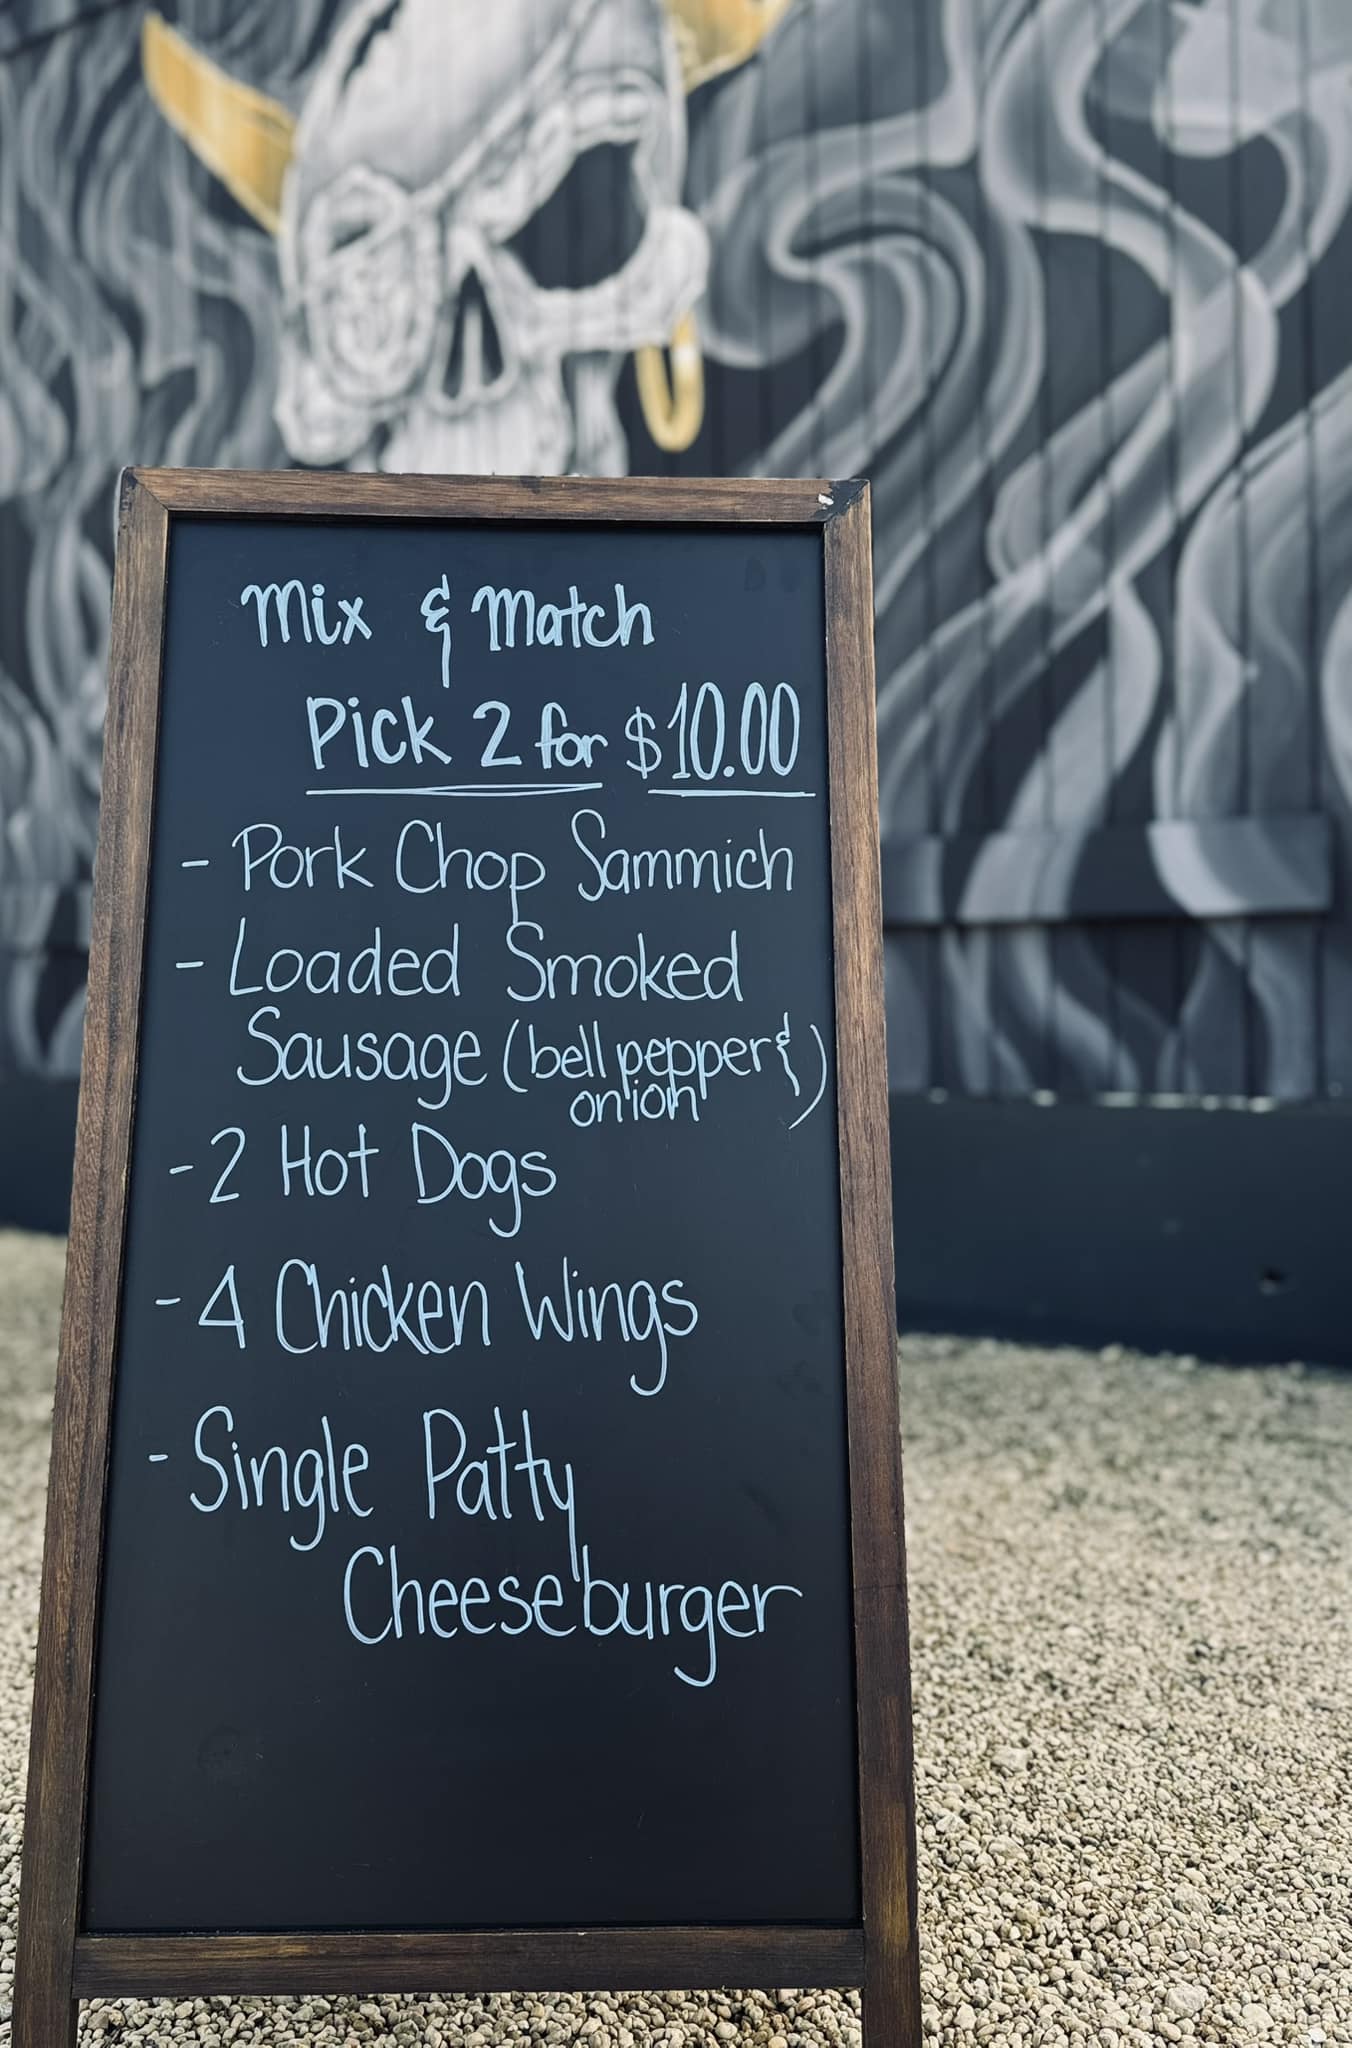 Mix & Match
Pick 2 for $10.00
- Pork Chop Sammich
- Loaded Smoked
Sausage (bell pepper &
onion)
- 2 Hot Dogs
- 4 Chicken Wings
- Single Patty
Cheeseburger